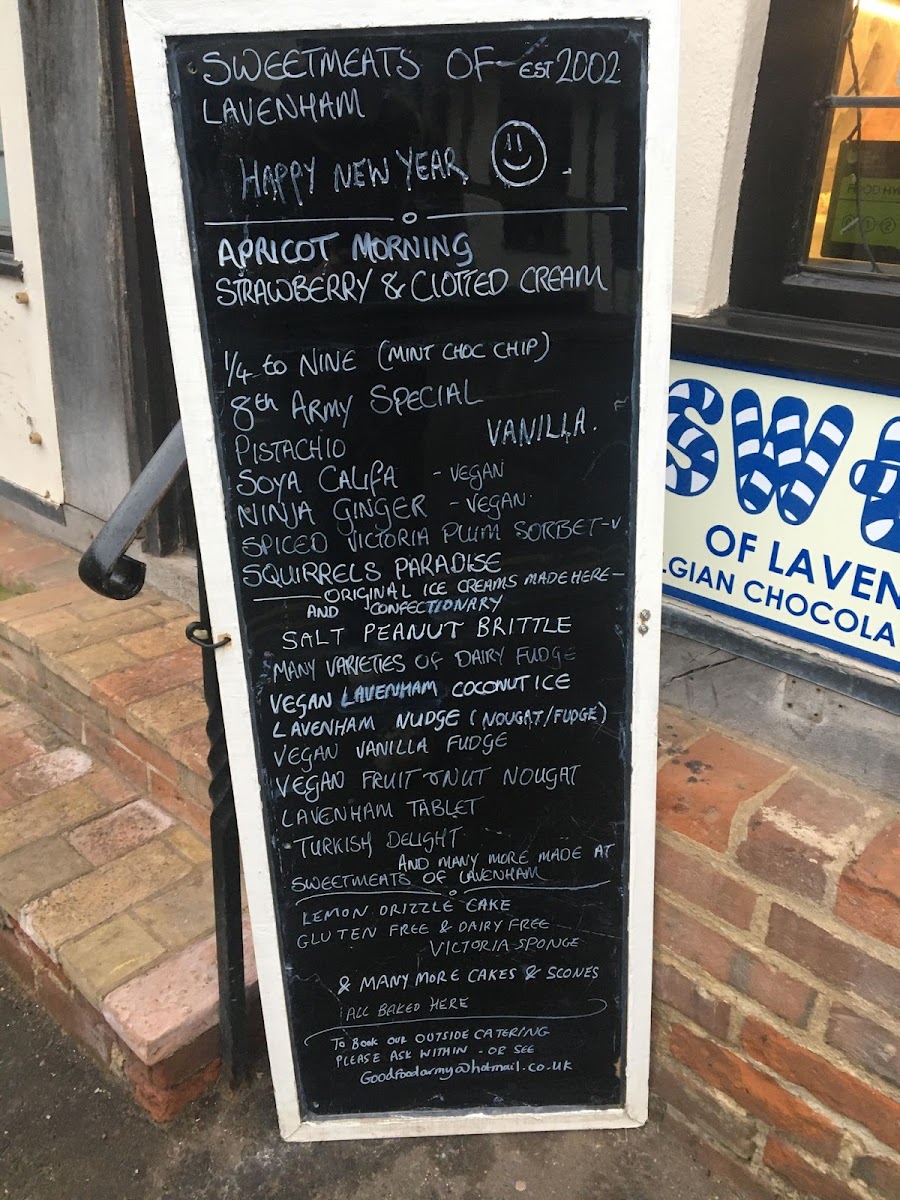 SWEETMEATS OF - EST 2002
LAVENHAM
HAPPY NEW YEAR
APRICOT MORNING
STRAWBERRY & CLOTTED CREAM
1/4 to NINE (MINT CHOC CHIP)
8th ARMY SPECIAL
VANILLA.
PISTACHIO
SOYA CALIFA - VEGAN
NINJA GINGER - VEGAN
SPICED VICTORIA PLUM SORBET - V
SQUIRRELS PARADISE
ORIGINAL ICE CREAMS MADE HERE -
AND CONFECTIONARY
SALT PEANUT BRITTLE
MANY VARIETIES OF DAIRY FUDGE
VEGAN LAVENHAM COCONUT ICE
LAVENHAM NUDGE (NOUGAT/FUDGE)
VEGAN VANILLA FUDGE
VEGAN FRUIT & NUT NOUGAT
LAVENHAM TABLET
TURKISH DELIGHT
AND MANY MORE MADE AT
SWEETMEATS OF LAVENHAM
LEMON DRIZZLE CAKE
GLUTEN FREE & DAIRY FREE
VICTORIA SPONGE
& MANY MORE CAKES & SCONES
ALL BAKED HERE
TO BOOK OUR OUTSIDE CATERING
PLEASE ASK WITHIN - OR SEE
Goodfoodarmy@hotmail.co.uk
SW
OF LAVEN
LGIAN CHOCOLA